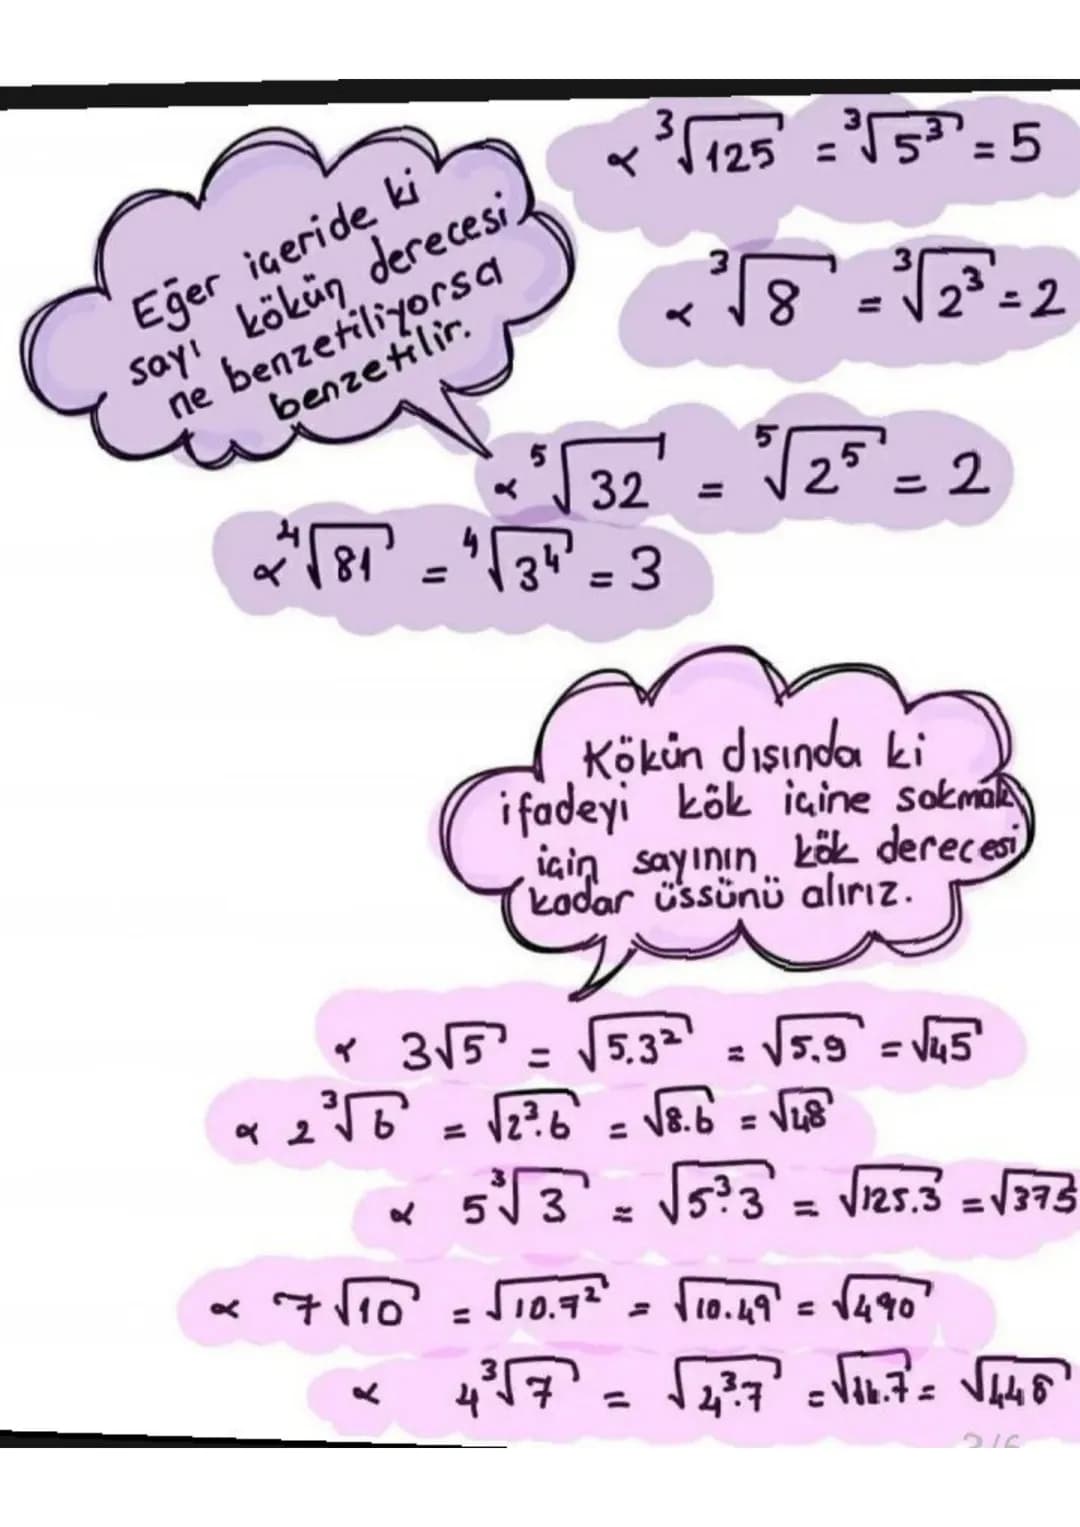 ∝ ³√125 = ³√5³ = 5
Eğer içeride ki
sayı kökün derecesi
ne benzetiliyorsa
benzetilir.
∝ ³√8 = ³√2³ = 2
∝ ⁵√32 = ⁵√2⁵ = 2
∝ ⁴√81 = ⁴√3⁴ = 3
Kökün dışında ki
ifadeyi kök içine sokmak
için sayının kök derecesi
kadar üssünü alırız.
∝ 3√5 = √5.3² = √5.9 = √45
∝ 2³√6 = √2³.6 = √8.6 = √48
∝ 5³√3 = √5³.3 = √125.3 = √375
∝ 7√10 = √10.7² = √10.49 = √490
∝ 4³√7 = √4³.7 =